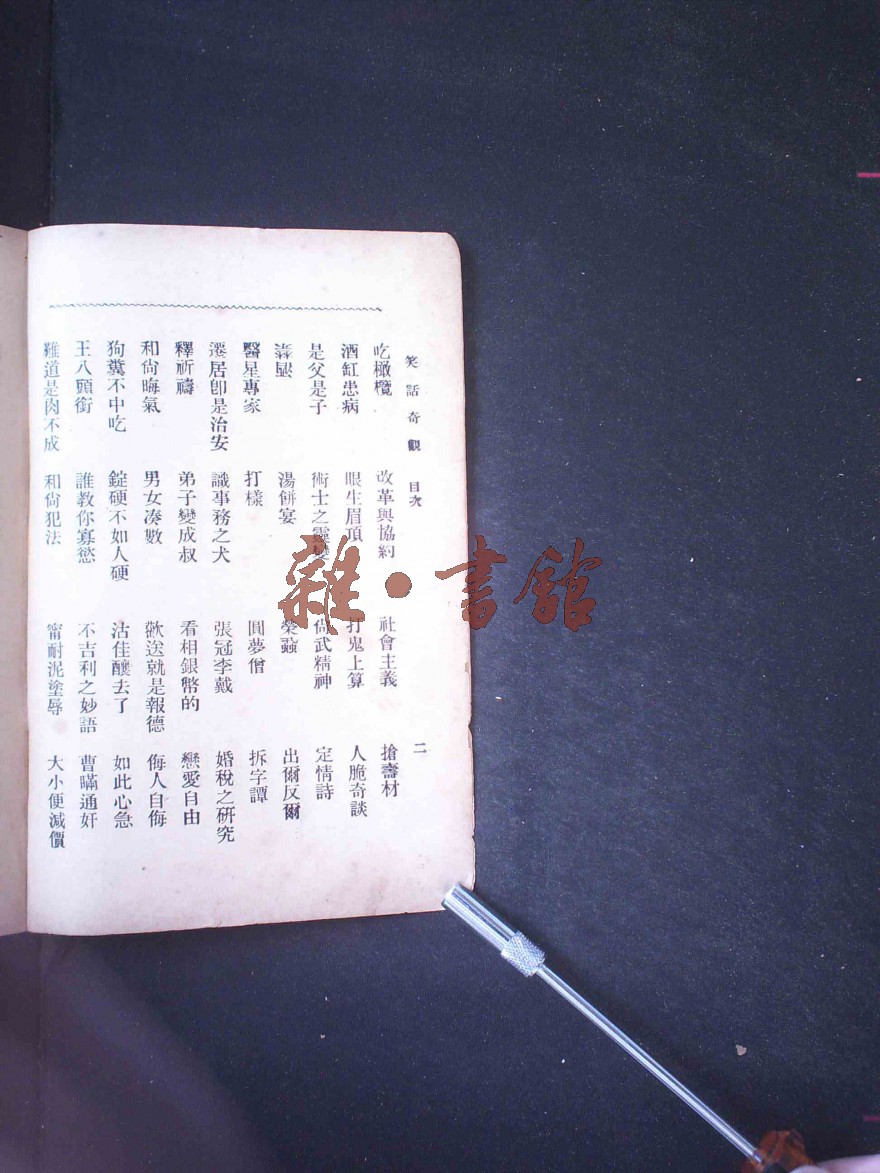 笑話奇觀 目次 二
吃橄欖 改革與協約 社會主義 搶壽材
酒缸患病 眼生眉頂 打鬼上算 人脆奇談
是父是子 術士之靈變 尚武精神 定情詩
湯餅宴 榮蝨 出爾反爾
醫星專家 打樣 圓夢僧 拆字譚
遷居卽是治安 識事務之犬 張冠李戴 婚稅之研究
釋祈禱 弟子變成叔 看相銀幣的 戀愛自由
和尙晦氣 男女凑數 歡送就是報德 侮人自侮
狗糞不中吃 錠硬不如人硬 沽佳釀去了 如此心急
王八頭銜 誰教你寡慾 不吉利之妙語 曹瞞通奸
難道是肉不成 和尙犯法 甯耐泥塗辱 大小便減價
雜·書館